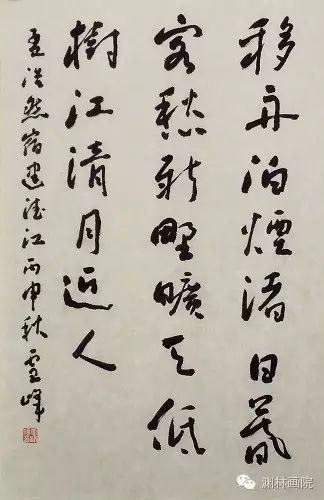 移舟泊煙渚日暮
客愁新野曠天低
樹江清月近人
孟浩然宿建德江丙申秋雲峰
渊林画院